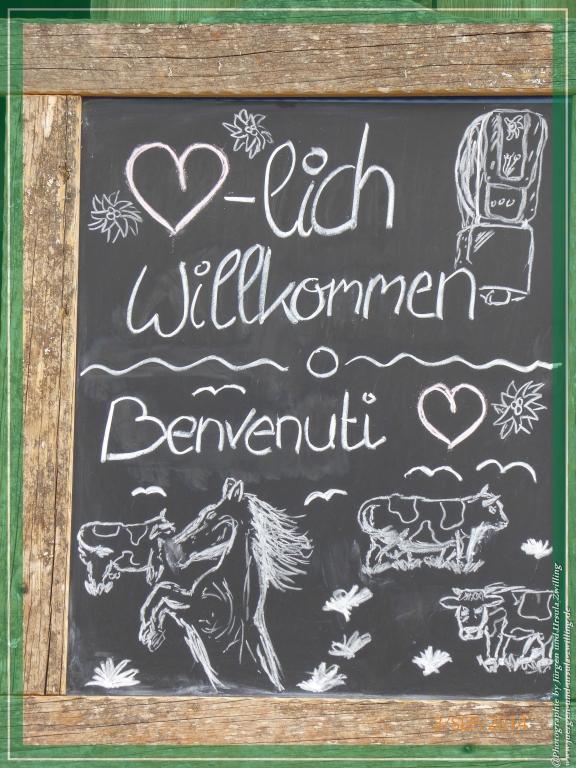 ♡-lich
Willkommen
Benvenuti
2 SEP 2014
@Photographie by Jürgen und Ursula Zwilling
www.juergen-und-ursula-zwilling.de